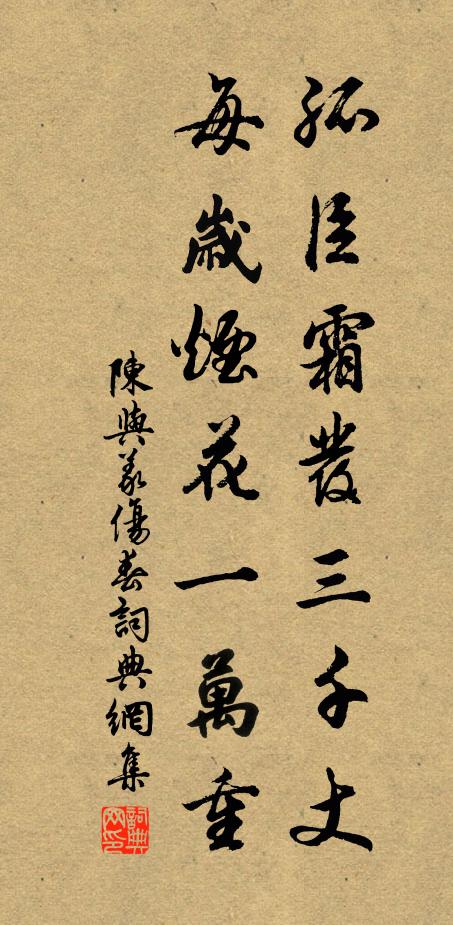 孤臣霜發三千丈
每歲煙花一萬重
陳與義傷春詞典網集
詞典网印